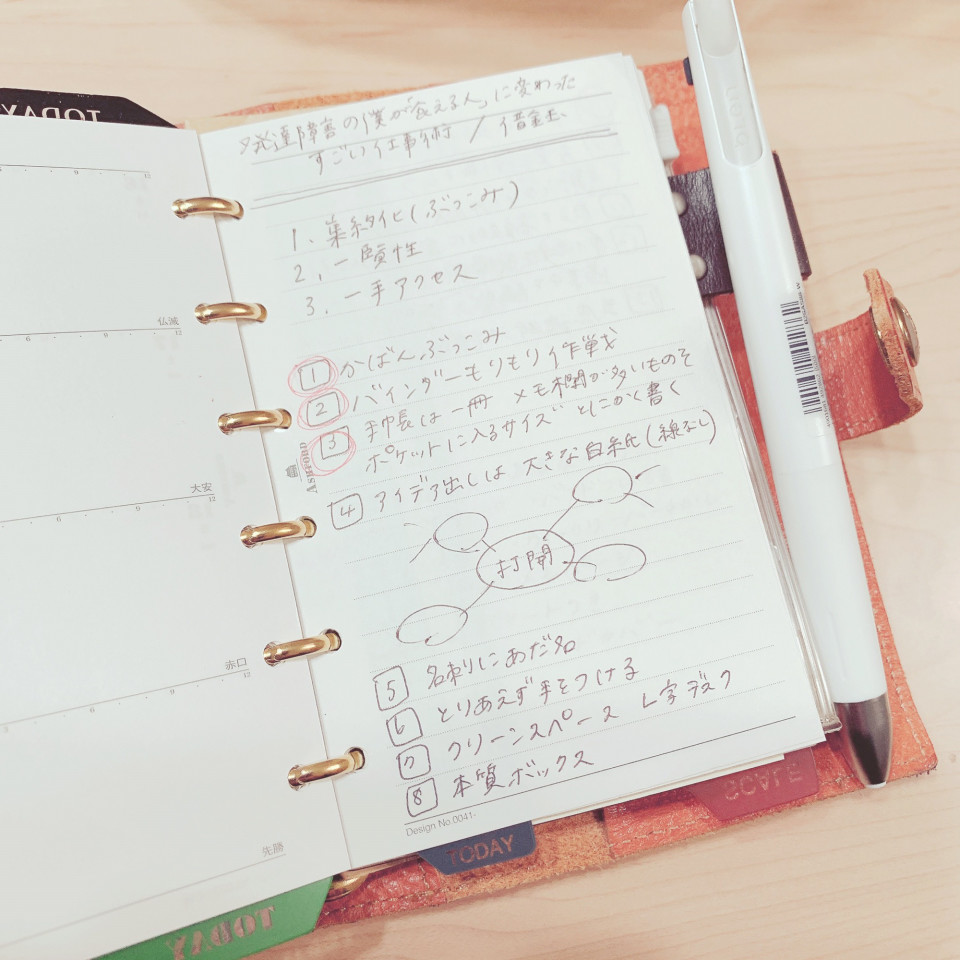 TODAY
発達障害の僕が「食える人」に変わった
すごい仕事術 / 借金玉
1. 集約化(ぶっこみ)
2. 一覧性
3. 一手アクセス
1 かばんぶっこみ
2 バインダーもりもり作戦
3 手帳は一冊 メモ欄が多いものを
ポケットに入るサイズ とにかく書く
4 アイデア出しは 大きな白紙(線なし)
打開
5 名刺にあだ名
6 とりあえず手をつける
7 クリーンスペース L字デスク
8 本質ボックス
Design No.0041-
Ashford
6 9 12
仏滅
6 9 12
大安
6 9 12
赤口
6 9 12
先勝
TODAY
SCALE
TODAY